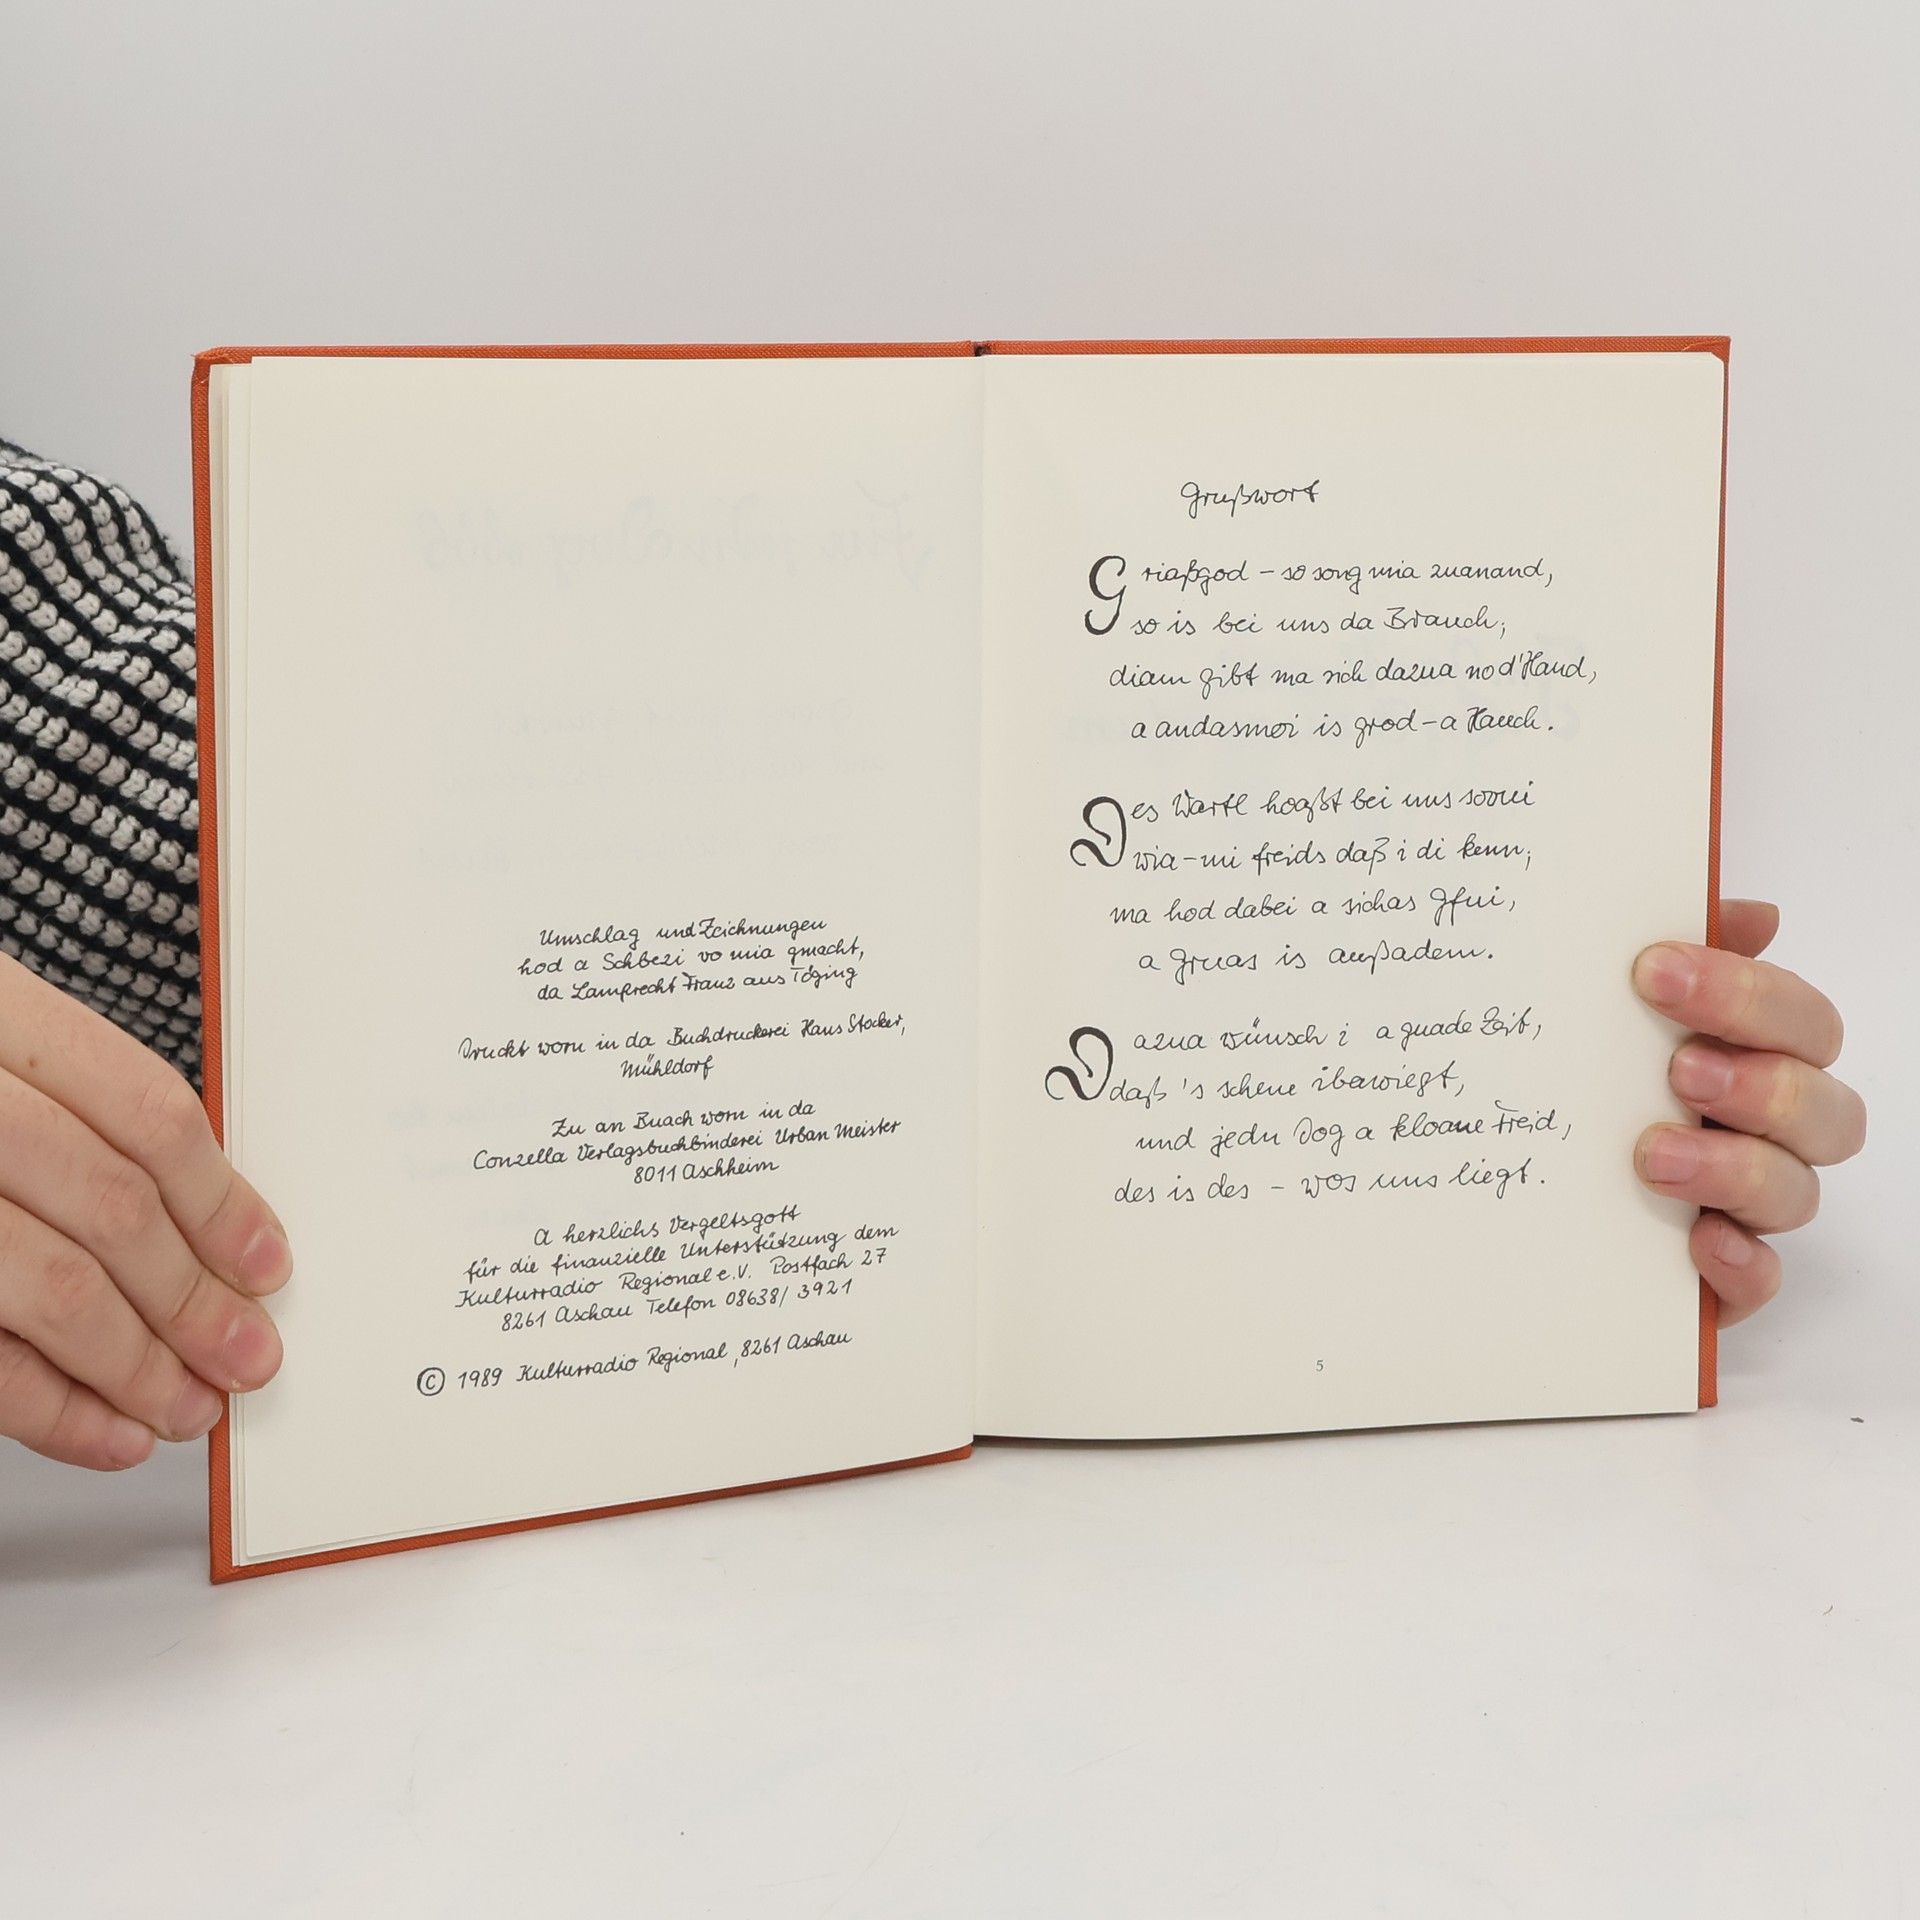 Umschlag und Zeichnungen
hod a Schbezi vo mia gmacht,
da Lamprecht Franz aus Töging
Druckt worn in da Buchdruckerei Hans Stocker,
Mühldorf
Zu an Buach worn in da
Conzella Verlagsbuchbinderei Urban Meister
8011 Aschheim
A herzlichs Vergeltsgott
für die finanzielle Unterstützung dem
Kulturradio Regional e.V. Postfach 27
8261 Aschau Telefon 08638/3921
© 1989 Kulturradio Regional, 8261 Aschau
Grußwort
Griaßgod – so song mia zuanand,
so is bei uns da Brauch;
diam gibt ma sich dazua no d'Hand,
a andasmoi is grod – a Hauch.
Des Wartl hoaßt bei uns sovui
wia – mi freids daß i di kenn;
ma hod dabei a sichas Gfui,
a Gruas is außadem.
Dazua wünsch i a guade Zeit,
daß 's schene ibawiegt,
und jedn Dog a kloane Freid,
des is des – wos uns liegt.
5